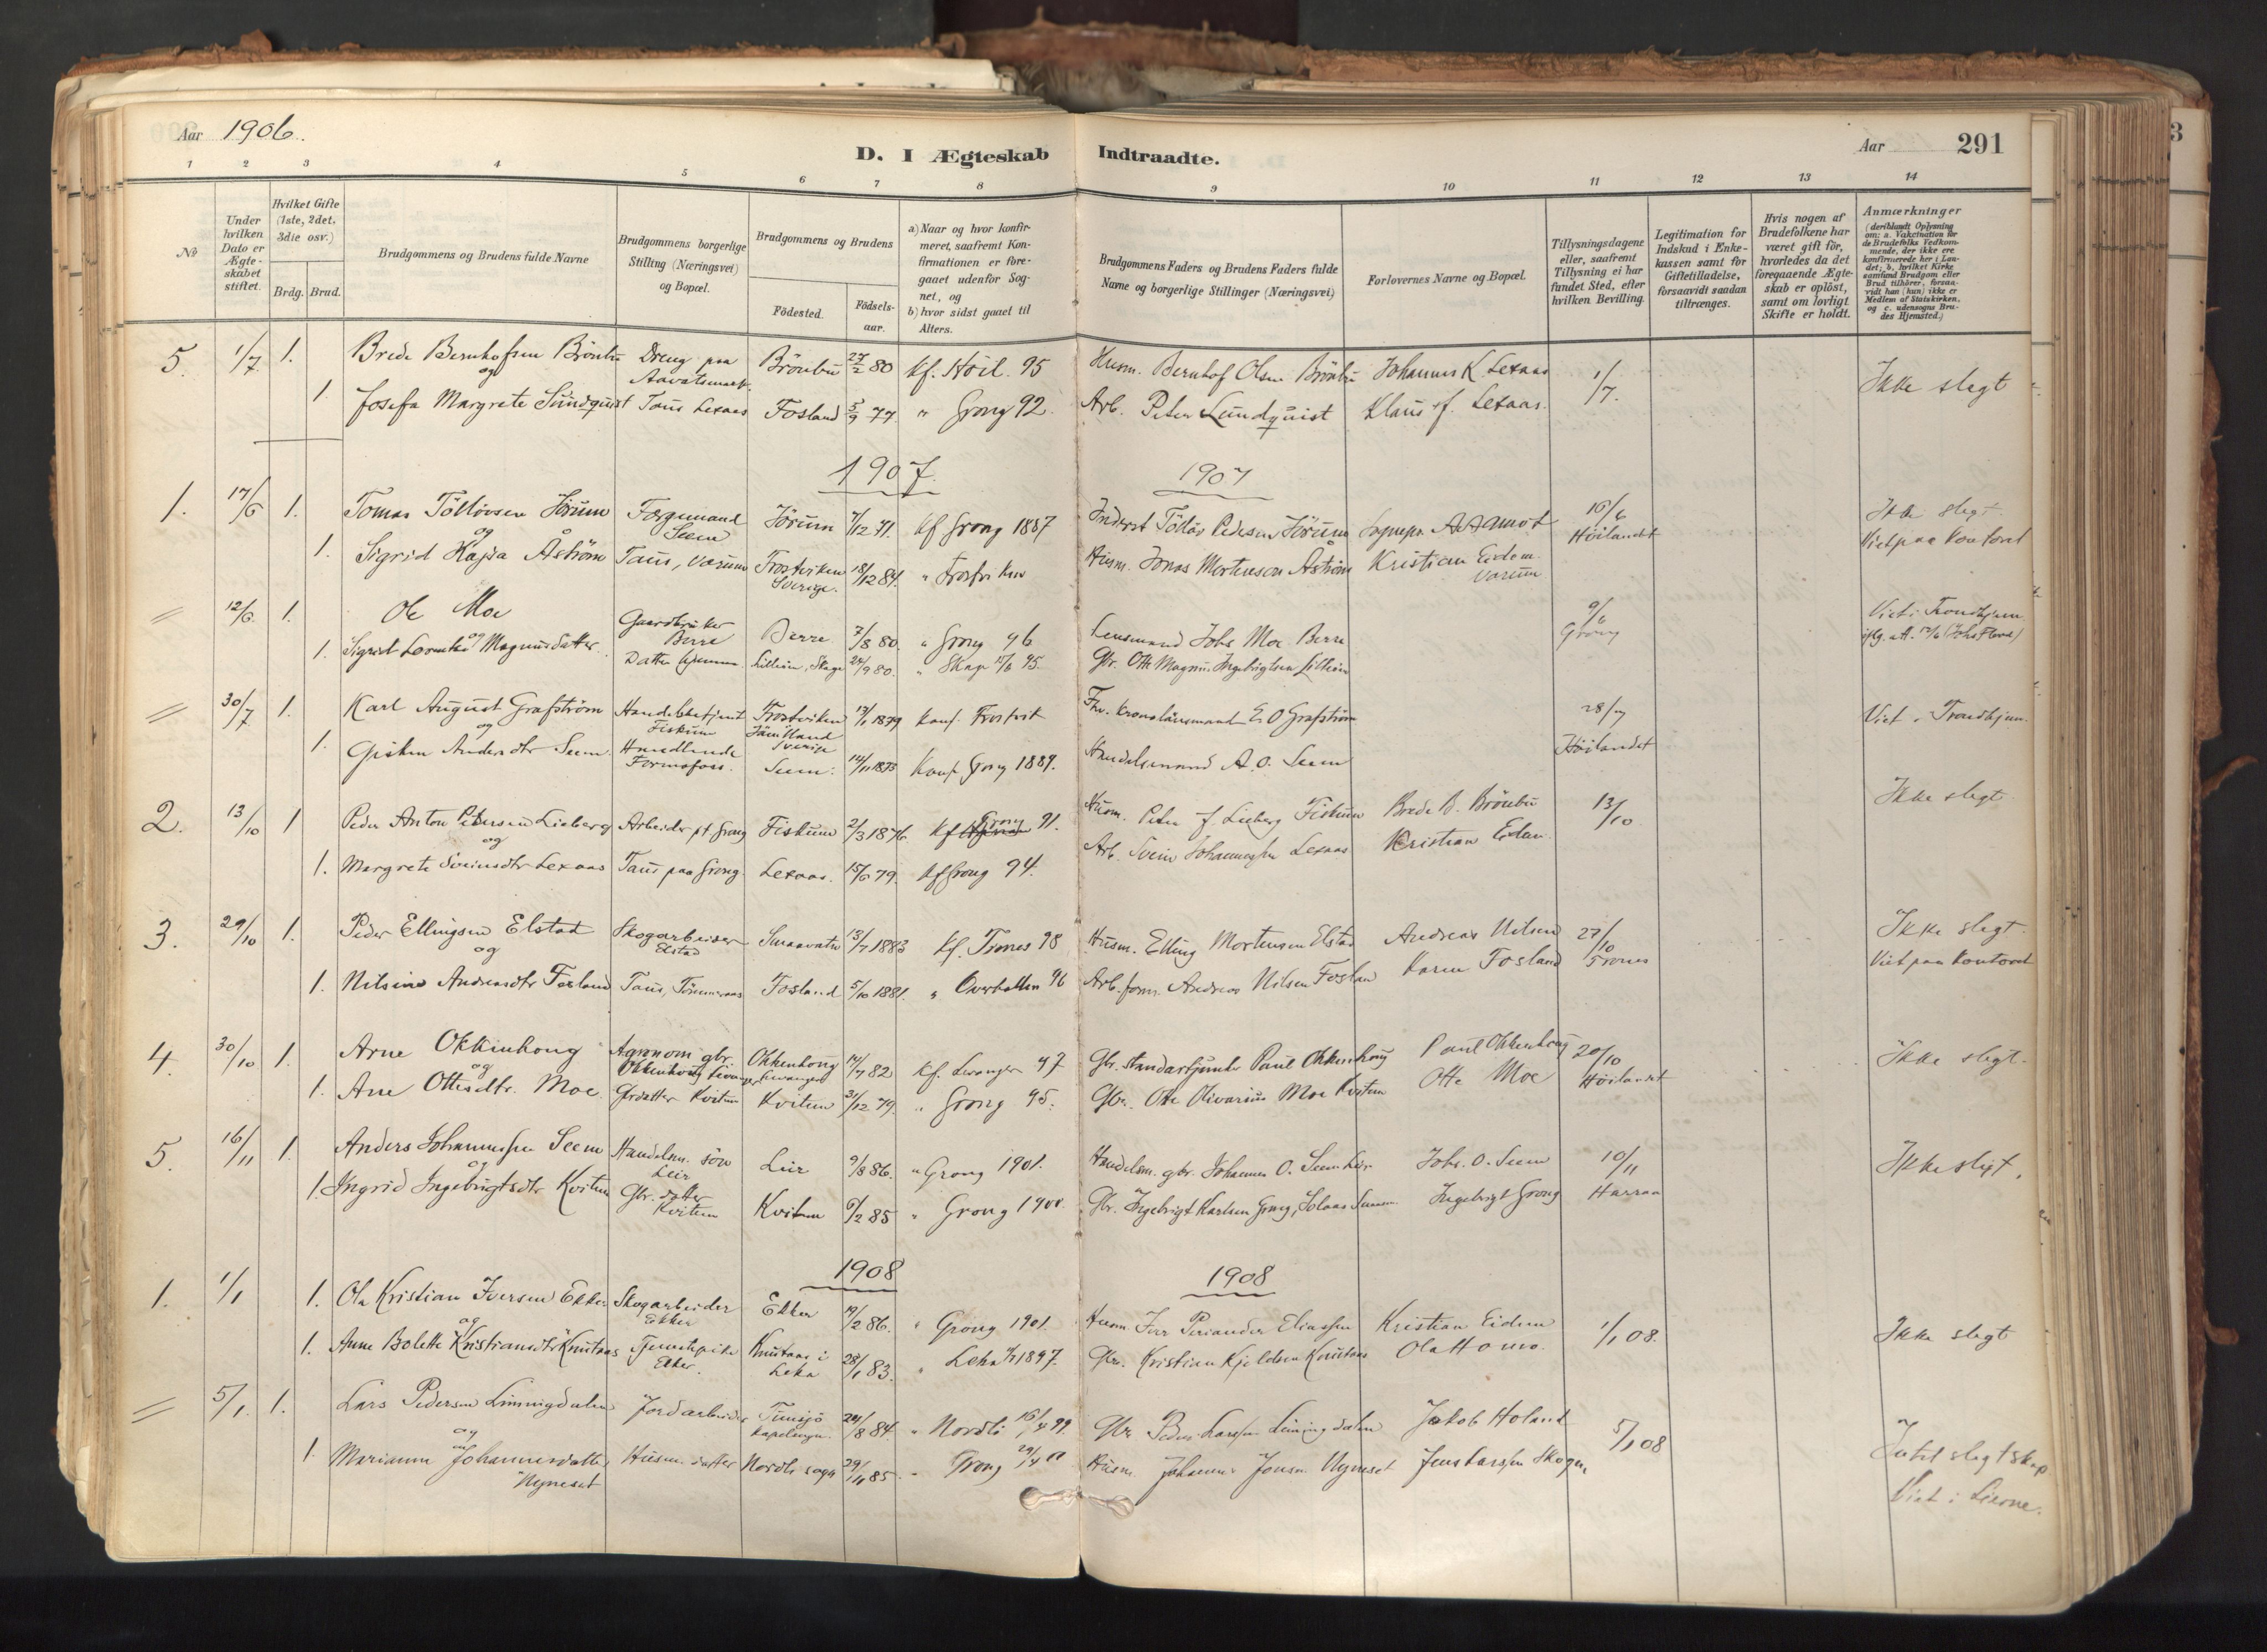 Aar 1906.
D. I Ægteskab Indtraadte.
Aar 291
1 2 3 4 5 6 7 8 9 10 11 12 13 14
No
Under hvilken Dato er Ægte-skabet stiftet.
Hvilket Gifte (1ste, 2det, 3die osv.)
Brdg. Brud.
Brudgommens og Brudens fulde Navne
Brudgommens borgerlige Stilling (Næringsvei) og Bopæl.
Brudgommens og Brudens
Fødested.
Fødsels-aar.
a) Naar og hvor konfir-meret, saafremt Kon-firmationen er fore-gaaet udenfor Sog-net, og
b) hvor sidst gaaet til Alters.
Brudgommens Faders og Brudens Faders fulde Navne og borgerlige Stillinger (Næringsvei)
Forlovernes Navne og Bopæl.
Tillysningsdagene eller, saafremt Tillysning ei har fundet Sted, efter hvilken Bevilling.
Legitimation for Indskud i Enke-kassen samt for Giftetilladelse, forsaavidt saadan tiltrænges.
Hvis nogen af Brudefolkene har været gift før, hvorledes da det foregaaende Ægte-skab er opløst, samt om lovligt Skifte er holdt.
Anmærkninger (deriblandt Oplysning om: a. Vakcination for de Brudefolks Vedkom-mende, der ikke ere konfirmerede her i Lan-det; b. hvilket Kirke samfund Brudgom eller Brud tilhører, forsaa-vidt han (hun) ikke er Medlem af Statskirken, og c. udensogns Bru-des Hjemsted.)
5. 1/7 1. Brede Bernhofsen Brönbu Dreng paa Aavatsmark. Brönbu 27/2 80 Kf. Höil. 95 Husm. Bernhof Olsen Brönbu Johannes K Lexaas 1/7. Ikke slegt
og
1. Josefa Margrete Sundquist Taus Lexaas Fosland 5/9 77. " Grong 92. Arb. Peter Lundquist Klaus J. Lexaas.
1907. 1907
1. 17/6 1. Tomas Töllövsen Jörum Seem Jörum 7/12 71. Kf Grong 1887 Inderst Pedersen Jörum 16/6 Höilandet Ikke slegt. Viet paa Kontoret
og
1. Sigrid Kajsa Åström Taus, Varum Frostviken Sverige. 18/12 84. " Frostviken Husm. Jonas Mortenson Åström Kristian Eidem Varum
" 12/6. 1. Ole Moe Gaardbruker Berre Berre 7/8 80. " Grong 96 Lensmand Johs Moe Berre 9/6 Grong Viet i Trondhjem
og
1. Sigrid Magnusdatter Datter Skage 24/9 80. " Skage 95. Gbr. Otto Magnus Ingebrigtsen
" 30/7 1. Karl August Grafström Handelsbetjent Fiskum Frostviken Jämtland Sverige 13/1 1879 Konf. Frostvik Fhv. Kronolänsmand E. O Grafström 28/7 Höilandet Viet i Trondhjem.
og
1. Gisken Andersdtr Seem. Handlende Formofoss. Seem. 14/11 1875 Konf. Grong 1889. Handelsmand A. O. Seem
2. 13/10 1 Peder Anton Petersen Lieberg Arbeider pt Grong Fiskum 2/3 1876. Kf Grong 91. Husm. Peter J. Lieberg Fiskum Brede B. Brönbu 13/10 Ikke slegt
og
1. Margrete Sveinsdtr Lexaas Taus paa Grong. Lexaas. 15/6 79. Kf Grong 94. Arb. Svein Johannessen Lexaas Kristian Eidem.
3. 29/10 1. Peder Ellingsen Elstad Skogarbeiser Elstad 13/7 1883 Kf. Trones 98 Husm. Elling Mortensen Elstad Andreas Nilsen 27/10 Trones Ikke slegt. Viet paa Kontoret
og
1. Nilsine Andreasdtr Fosland Taus, Tömmeraas Fosland 5/10 1881. " Overhallen 96 Arb. form. Andreas Nilsen Fosland Karen Fosland
4. 30/10 1. Arne Okkenhoug Agronom gbr. Okkenhoug Levanger Okkenhoug Levanger 14/7 82 Kf. Levanger 97 Gbr. Paul Okkenhoug Paul Okkenhoug 20/10 Höilandet Ikke slegt.
og
1. Ane Ottesdtr. Moe Gbrdatter Kvitum Kvitum 31/12 79. " Grong 95. Gbr. Otte Olivarius Moe Kvitum Otte Moe
5. 16/11 1. Anders Johannessen Seem Handelsm. sön Leir Leir 9/8 86. " Grong 1901. Handelsm. gbr. Johannes O. Seem Leir Johs. O. Seem 10/11 Harran Ikke slegt.
og
1. Ingrid Ingebrigtsdtr Kvitum Gbr. datter Kvitum Kvitum 6/2 85 " Grong 1900. Gbr. Ingebrigt Karlsen Grong, Ingebrigt Grong
1908 1908
1. 1/1 1. Ola Kristian Iversen Ekker Skogarbeider Ekker Ekker 19/2 86. " Grong 1901. Husm. Iver Periander Eliassen Kristian Eidem 1/1 08. Ikke slegt
og
1. Anne Bolette Kristiansdtr Knutaas Tjenestpike Ekker. Knutaas i Leka 28/1 83. " Leka 1897. Gbr. Kristian Kjeldsen Knutaas Ola Homo.
" 5/1. 1. Lars Pedersen Limingdalen Jordarbeider Tunsjö Kapelsogn. 24/8 84. " Nordli 16/4 99. Gbr Peder Larssen Limingdalen Jakob Holand 5/1 08 Intet slegtskap
og
1. Marianna Johannesdatter Nyneset Husm. datter Nordli sogn 29/11 85. " Grong Husm. Johannes Jonsen Nyneset Jens Larssen Skogen Viet i Lierne.